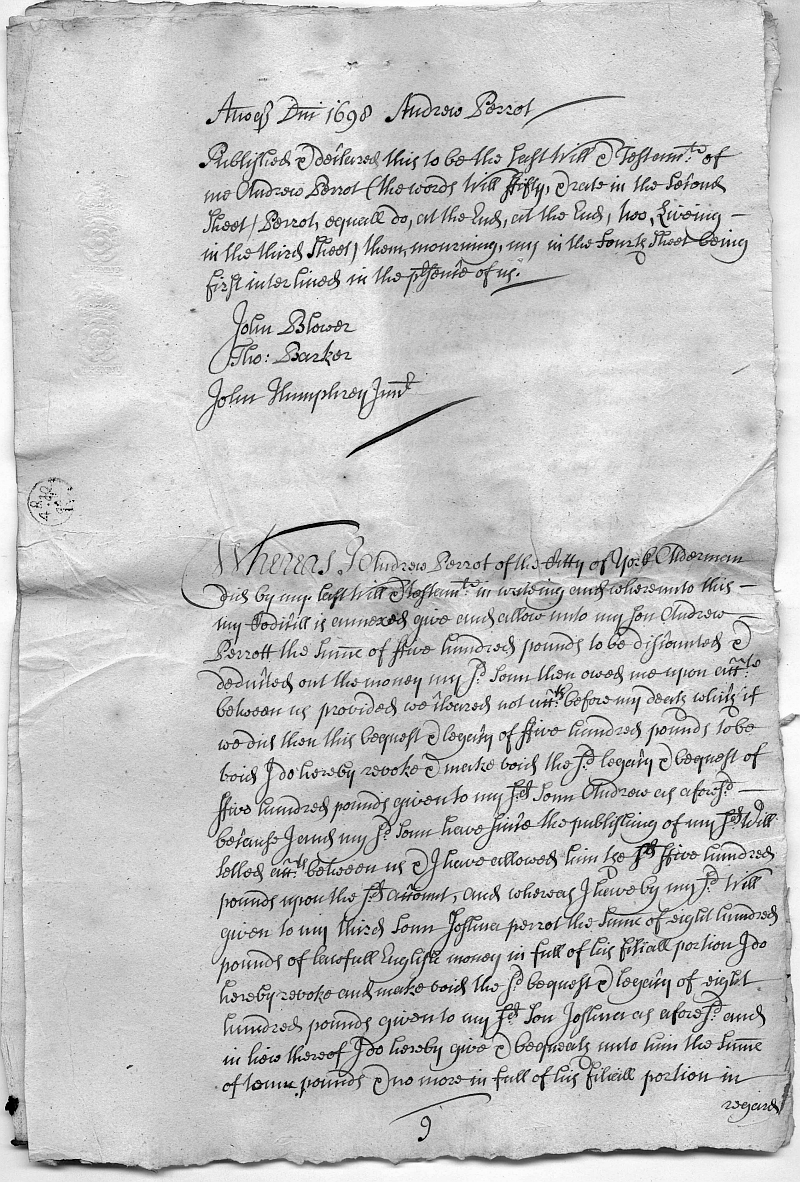 Annoq Dm 1698 Andrew Perrot
Published & declared this to be the last Will & Testamte of
me Andrew Perrot (the words Will ffifty, & rate in the Second
Sheet, Perrot, equall do, at the End, at the End, two, Liveing –
in the third Sheet, them, mourning, my in the fourth Sheet being
first interlined in the psence of us.
John Blower
Tho: Barker
John Humphrey Junr
Whereas I Andrew Perrot of the Citty of York Alderman
did by my last Will & Testamte in writeing and whereunto this –
my Codicill is annexed give and allow unto my son Andrew
Perrott the Sume of ffive hundred pounds to be discounted &
deducted out the money my sd Sonn then owed me upon acctts
between us provided we cleared not acctts before my death which if
we did then this bequest & legacy of ffive hundred pounds to be
void I do hereby revoke & make void the sd legacy & bequest of
ffive hundred pounds given to my sd Sonn Andrew as aforesd –
because I and my sd Sonn have since the publishing of my sd Will
setled acctts between us & I have allowed him the sd ffive hundred
pounds upon the sd account, and whereas I have by my sd Will
given to my third Sonn Joshua perrot the Sume of eight hundred
pounds of lawfull English money in full of his filiall portion I do
hereby revoke and make void the sd bequest & legacy of eight
hundred pounds given to my sd Son Joshua as aforesd and
in liew thereof I do hereby give & bequeath unto him the Sume
of tenn pounds & no more in full of his filiall portion in
regard
9